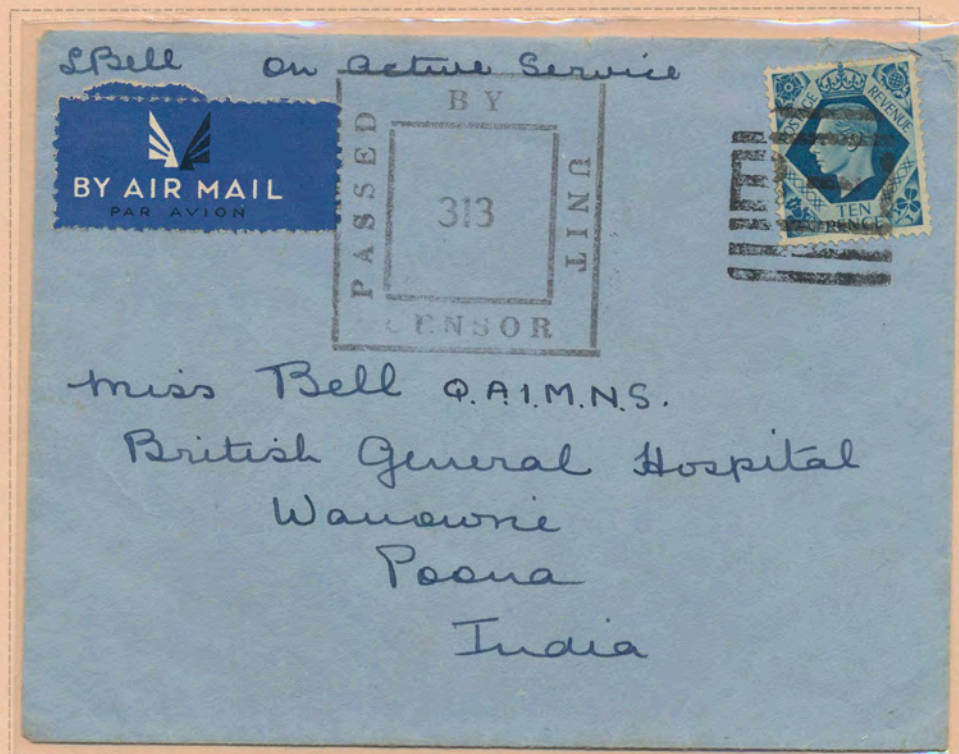 LBell on active Service
BY AIR MAIL
PAR AVION
PASSED BY UNIT CENSOR
313
POSTAGE REVENUE
TEN PENCE
Miss Bell Q.A.I.M.N.S.
British General Hospital
Wanowrie
Poona
India